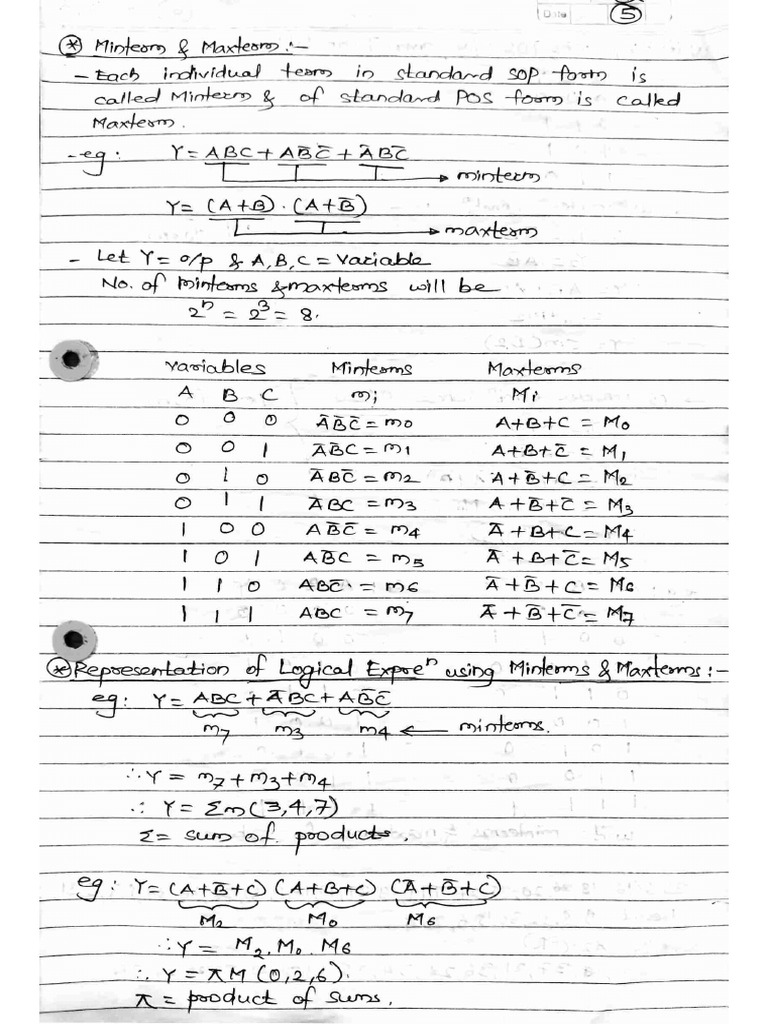 Date
5
* Minterm & Maxterm :-
- Each individual term in standard SOP form is
called Minterm & of standard POS form is called
Maxterm.
- eg: Y = ABC + AB̄C̄ + ĀBC̄
minterm
Y = (A+B) . (A+B̄)
maxterm
- Let Y = o/p & A, B, C = variable
No. of minterms & maxterms will be
2ⁿ = 2³ = 8.
variables Minterms Maxterms
A B C mi Mi
0 0 0 ĀB̄C̄ = m0 A+B+C = M0
0 0 1 ĀB̄C = m1 A+B+C̄ = M1
0 1 0 ĀBC̄ = m2 A+B̄+C = M2
0 1 1 ĀBC = m3 A+B̄+C̄ = M3
1 0 0 AB̄C̄ = m4 Ā+B+C = M4
1 0 1 AB̄C = m5 Ā+B+C̄ = M5
1 1 0 ABC̄ = m6 Ā+B̄+C = M6
1 1 1 ABC = m7 Ā+B̄+C̄ = M7
* Representation of Logical Expreⁿ using Minterms & Maxterms :-
eg: Y = ABC + ĀBC + AB̄C̄
m7 m3 m4 ← minterms.
∴ Y = m7 + m3 + m4
∴ Y = Σm(3,4,7)
Σ = sum of products.
eg: Y = (A+B̄+C) (A+B+C) (Ā+B̄+C)
M2 M0 M6
∴ Y = M2. M0. M6
∴ Y = πM (0,2,6).
π = product of sums.